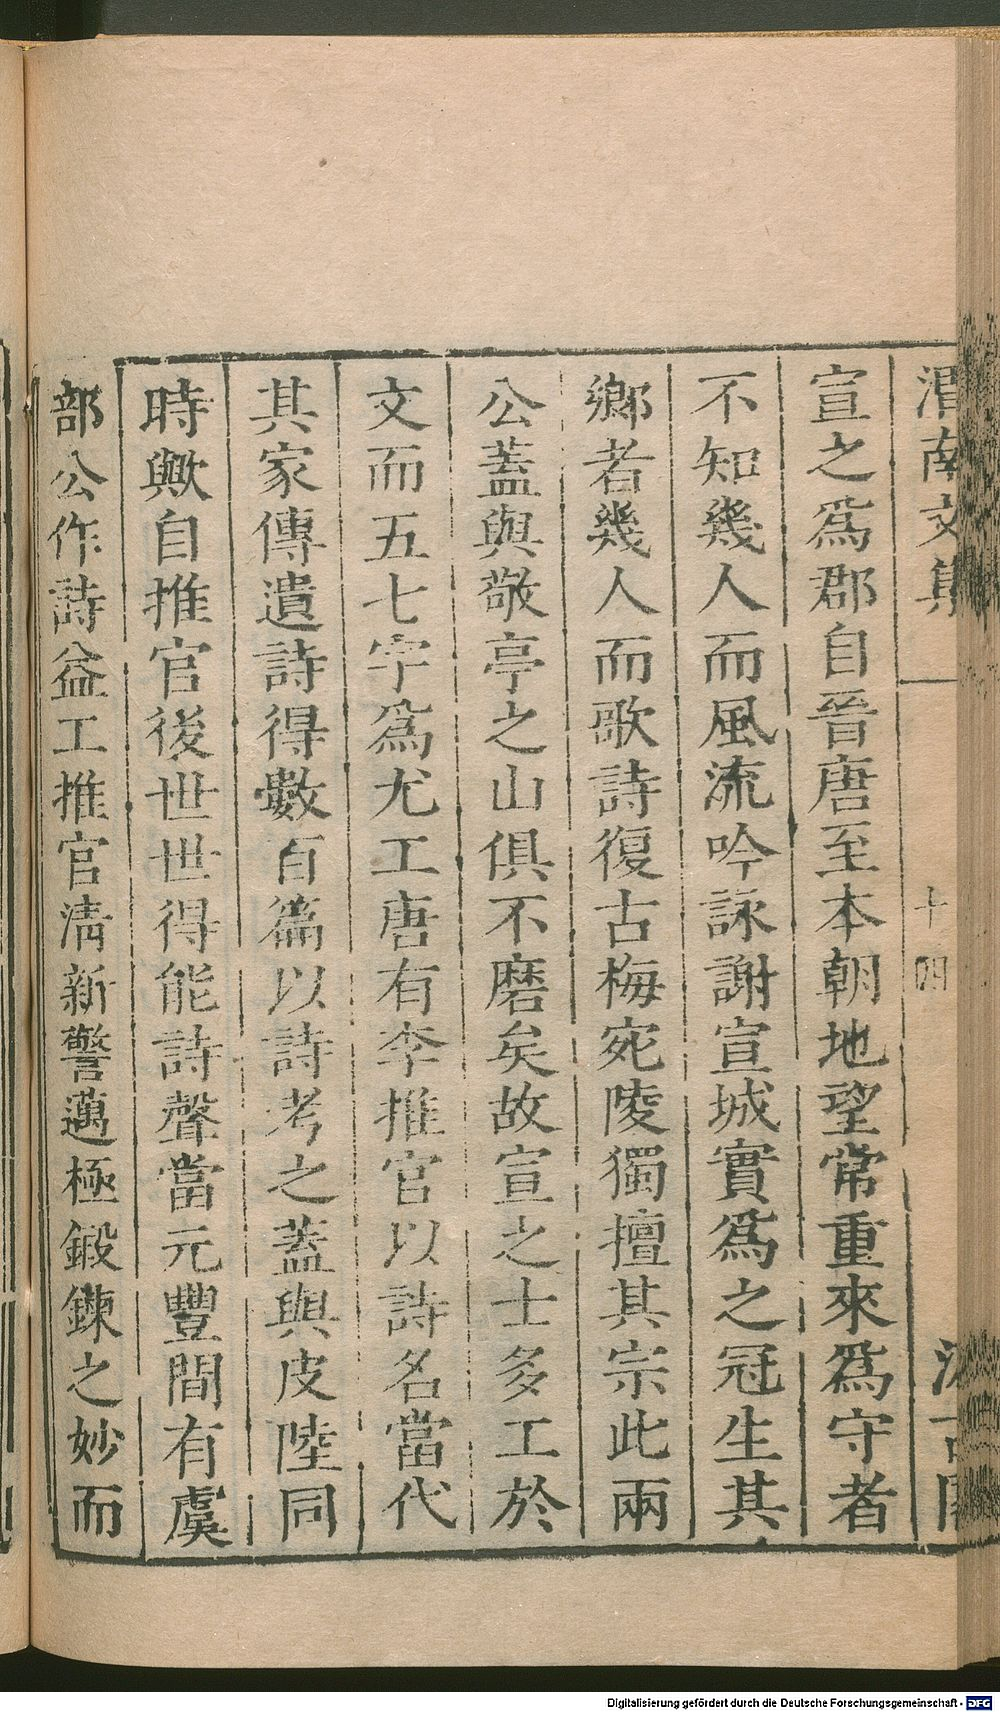 渭南文集
十四
汲古閣
宣之爲郡自晉唐至本朝地望常重來爲守者
不知幾人而風流吟詠謝宣城實爲之冠生其
鄉者幾人而歌詩復古梅宛陵獨擅其宗此兩
公蓋與敬亭之山俱不磨矣故宣之士多工於
文而五七字爲尤工唐有李推官以詩名當代
其家傳遺詩得數百篇以詩考之蓋與皮陸同
時歟自推官後世世得能詩聲當元豐間有虞
部公作詩益工推官清新警邁極鍛鍊之妙而
Digitalisierung gefördert durch die Deutsche Forschungsgemeinschaft - DFG